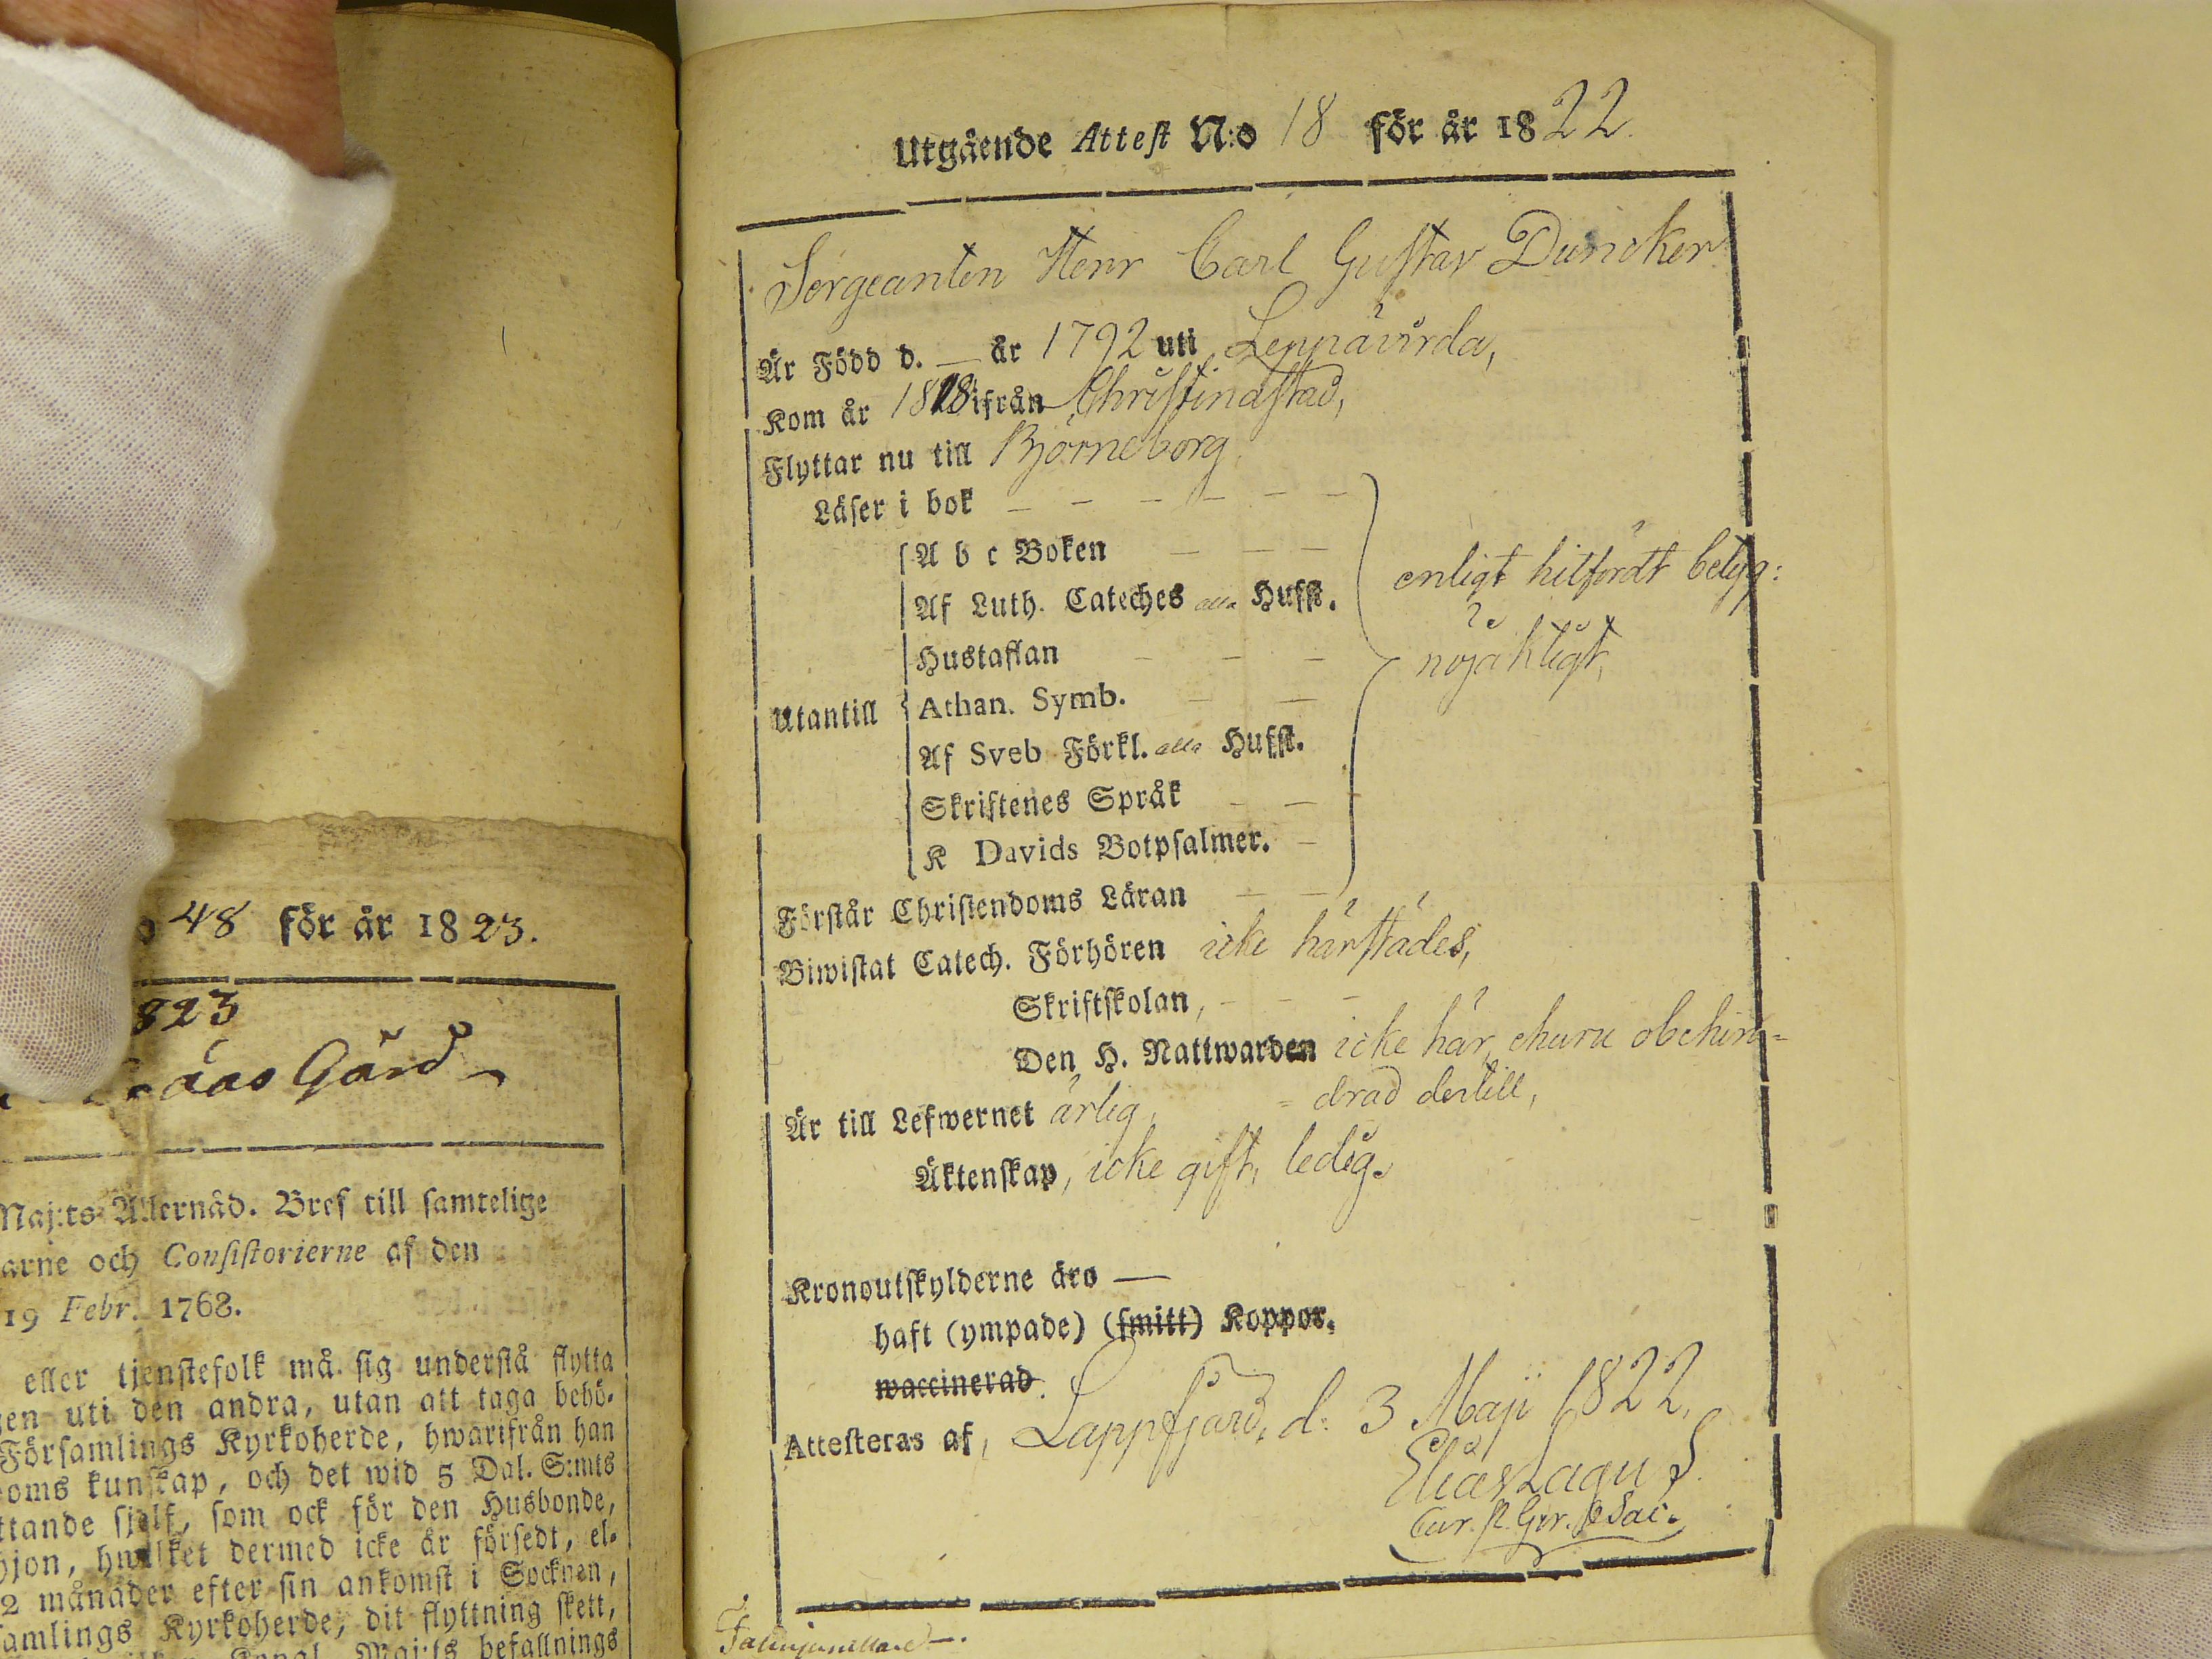 48 för år 1823.
823
åas Gård
Maj:ts Allernåd. Bref till samtelige
arne och Consistorierne af den
19 Febr. 1768.
eller tjenstefolk må sig understå flytta
en uti den andra, utan att taga behö-
Församlings Kyrkoherde, hwarifrån han
oms kunskap, och det wid 5 Dal. S:mts
ttande sjelf, som ock för den Husbonde,
hjon, hwilket dermed icke är försedt, el-
2 månader efter sin ankomst i Socknen,
samlings Kyrkoherde, dit flyttning skett,
Maj:ts befallnings
Utgående Attest N:o 18 för år 1822.
Sergeanten Herr Carl Gustav Duncker
Är Född d. — år 1792 uti Leppävirda,
Kom år 1818 ifrån Christinæstad,
Flyttar nu till Björneborg
Läser i bok — — — — — —
A b c Boken — — —
Af Luth. Cateches alla Hufst. enligt hitfördt betyg:
Hustaflan — — — nöjaktigt,
Utantill Athan. Symb. — —
Af Sveb Förkl. alla Hufst.
Skriftenes Språk — —
K Davids Botpsalmer. —
Förstår Christendoms Läran — —
Biwistat Catech. Förhören icke härstädes,
Skriftskolan, — — —
Den H. Nattwarden icke här, ehuru obehin=
Är till Lefwernet ärlig, =drad dertill,
Äktenskap, icke gift, ledig.
Kronoutskylderne äro —
haft (ympade) (smitt) Koppor.
waccinerad.
Attesteras af, Lappfjärd, d: 3 Maji 1822,
Elias Lagus